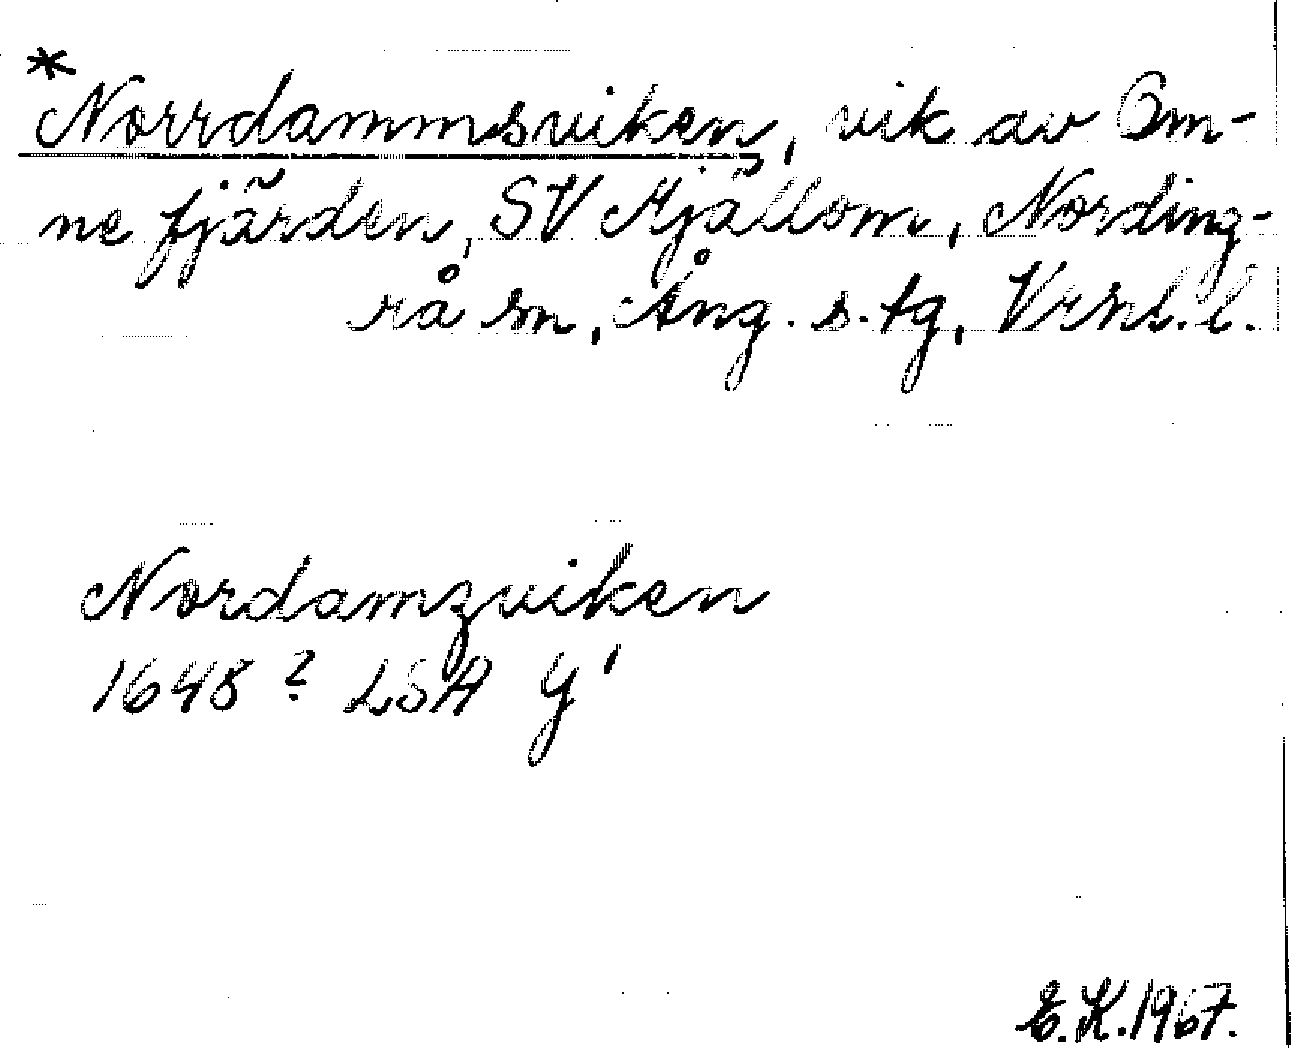 *Norrdammsviken, vik av Om-
ne fjärden, SV Mjällom, Nording-
rå sn, Ång. s. tg, Vrnl. l.
Nordamzviken
1648? LSA Y¹
E.K. 1967.